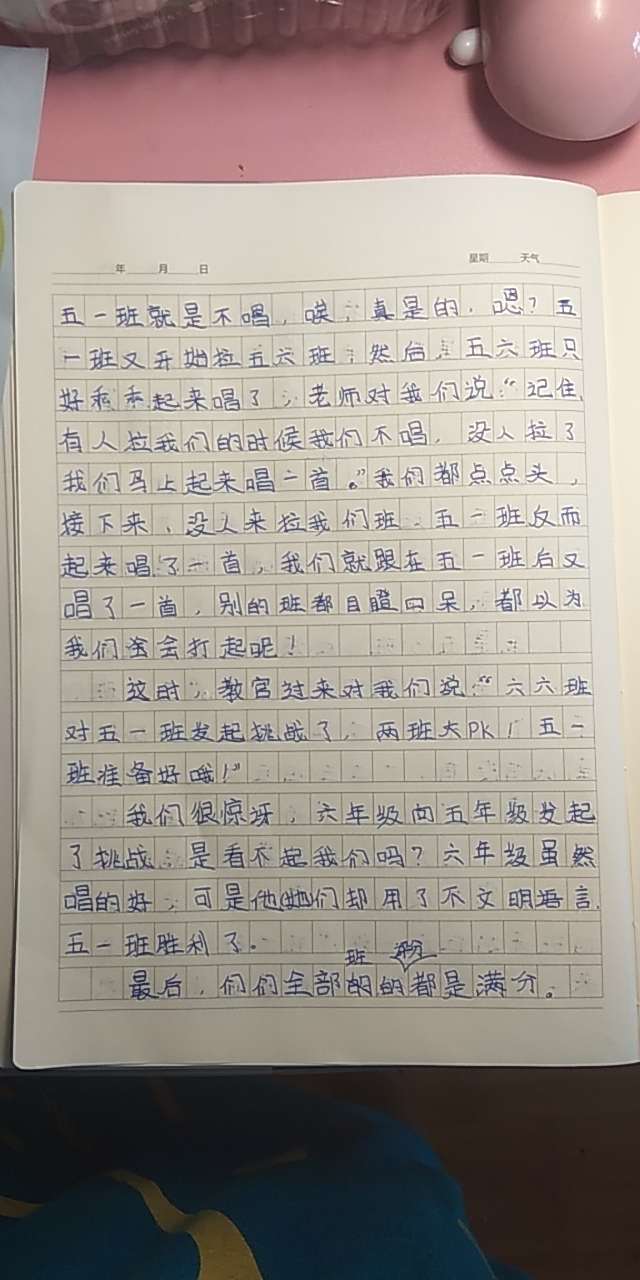 年 月 日 星期 天气
五一班就是不唱，唉，真是的，嗯？五
一班又开始拉五六班，然后，五六班只
好乖乖起来唱了，老师对我们说“记住，
有人拉我们的时候我们不唱，没人拉了
我们马上起来唱一首。”我们都点点头，
接下来，没人来拉我们班，五一班反而
起来唱了一首，我们就跟在五一班后又
唱了一首，别的班都目瞪口呆，都以为
我们会打起呢！
这时，教官过来对我们说“六六班
对五一班发起挑战了，两班大PK！五一
班准备好哦！”
我们很惊讶，六年级向五年级发起
了挑战，是看不起我们吗？六年级虽然
唱的好，可是他(她)们却用了不文明语言，
五一班胜利了。
班
最后，们们全部的都是满分。